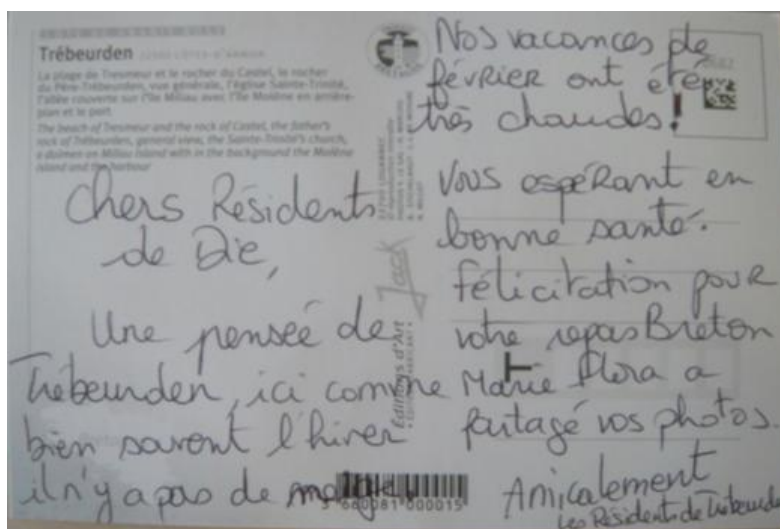 Trébeurden
La plage de Tresmeur et le rocher du Castel, le rocher
du Père-Trébeurden, vue générale, l'église Sainte-Trinité,
l'allée couverte sur l'île Miliau avec l'île Molène en arrière-
plan et le port
The beach of Tresmeur and the rock of Castel, the father's
rock of Trébeurden, general view, the Sainte-Trinité's church,
a dolmen on Miliau island with in the background the Molène
island and the harbour
Chers Résidents
de Die,
Une pensée de
Trébeurden, ici comme
bien souvent l'hiver
il n'y a pas de
Éditions d'Art Jack
3 660081 000015
Nos vacances de
février ont été
très chaudes!
Vous espérant en
bonne santé.
félicitation pour
votre repas Breton
Marie Flora a
partagé vos photos.
Amicalement
Les Résidents de Trébeurden